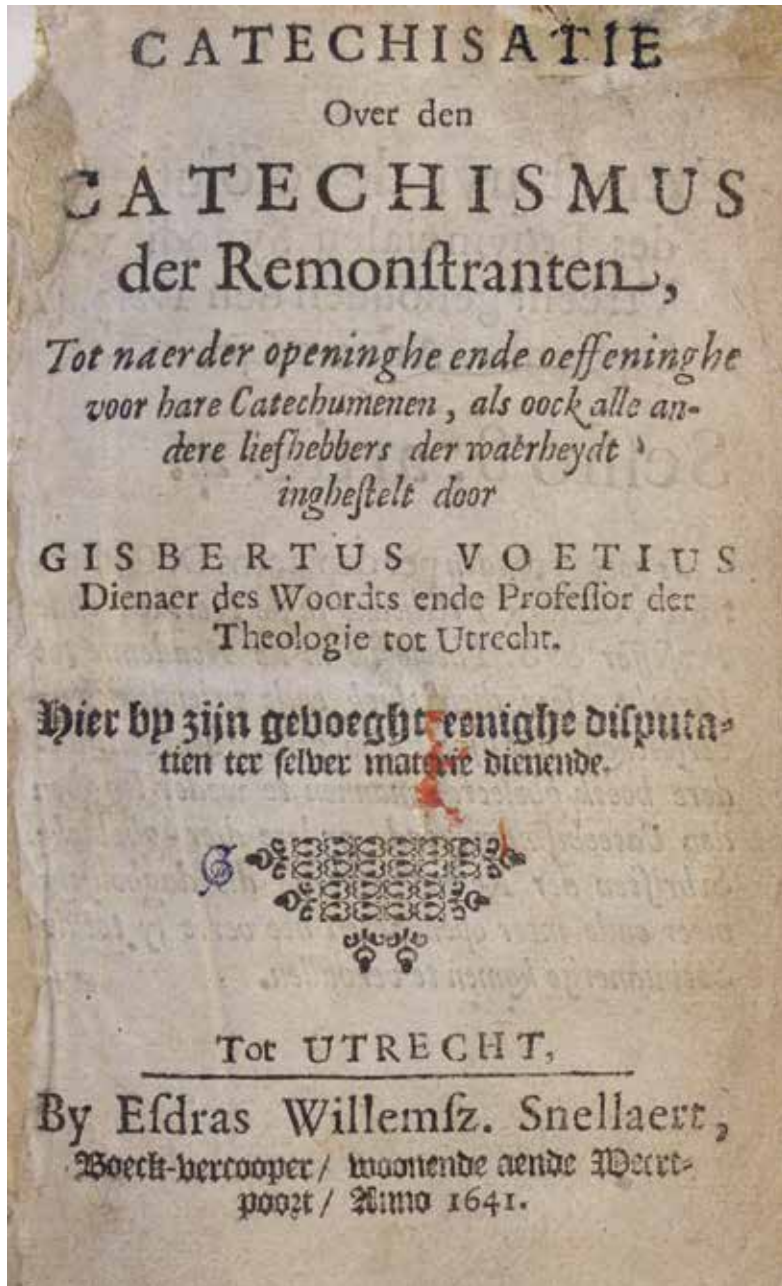 CATECHISATIE
Over den
CATECHISMUS
der Remonſtranten,
Tot naerder openinghe ende oeffeninghe
voor hare Catechumenen, als oock alle an-
dere liefhebbers der waerheydt
ingheſtelt door
GISBERTUS VOETIUS
Dienaer des Woordts ende Profeſſor der
Theologie tot Utrecht.
Hier by zijn gevoeght eenighe diſputa-
tien ter ſelver materie dienende.
Tot UTRECHT,
By Eſdras Willemſz. Snellaert,
Boeck-vercooper / woonende aende Weert-
poort / Anno 1641.